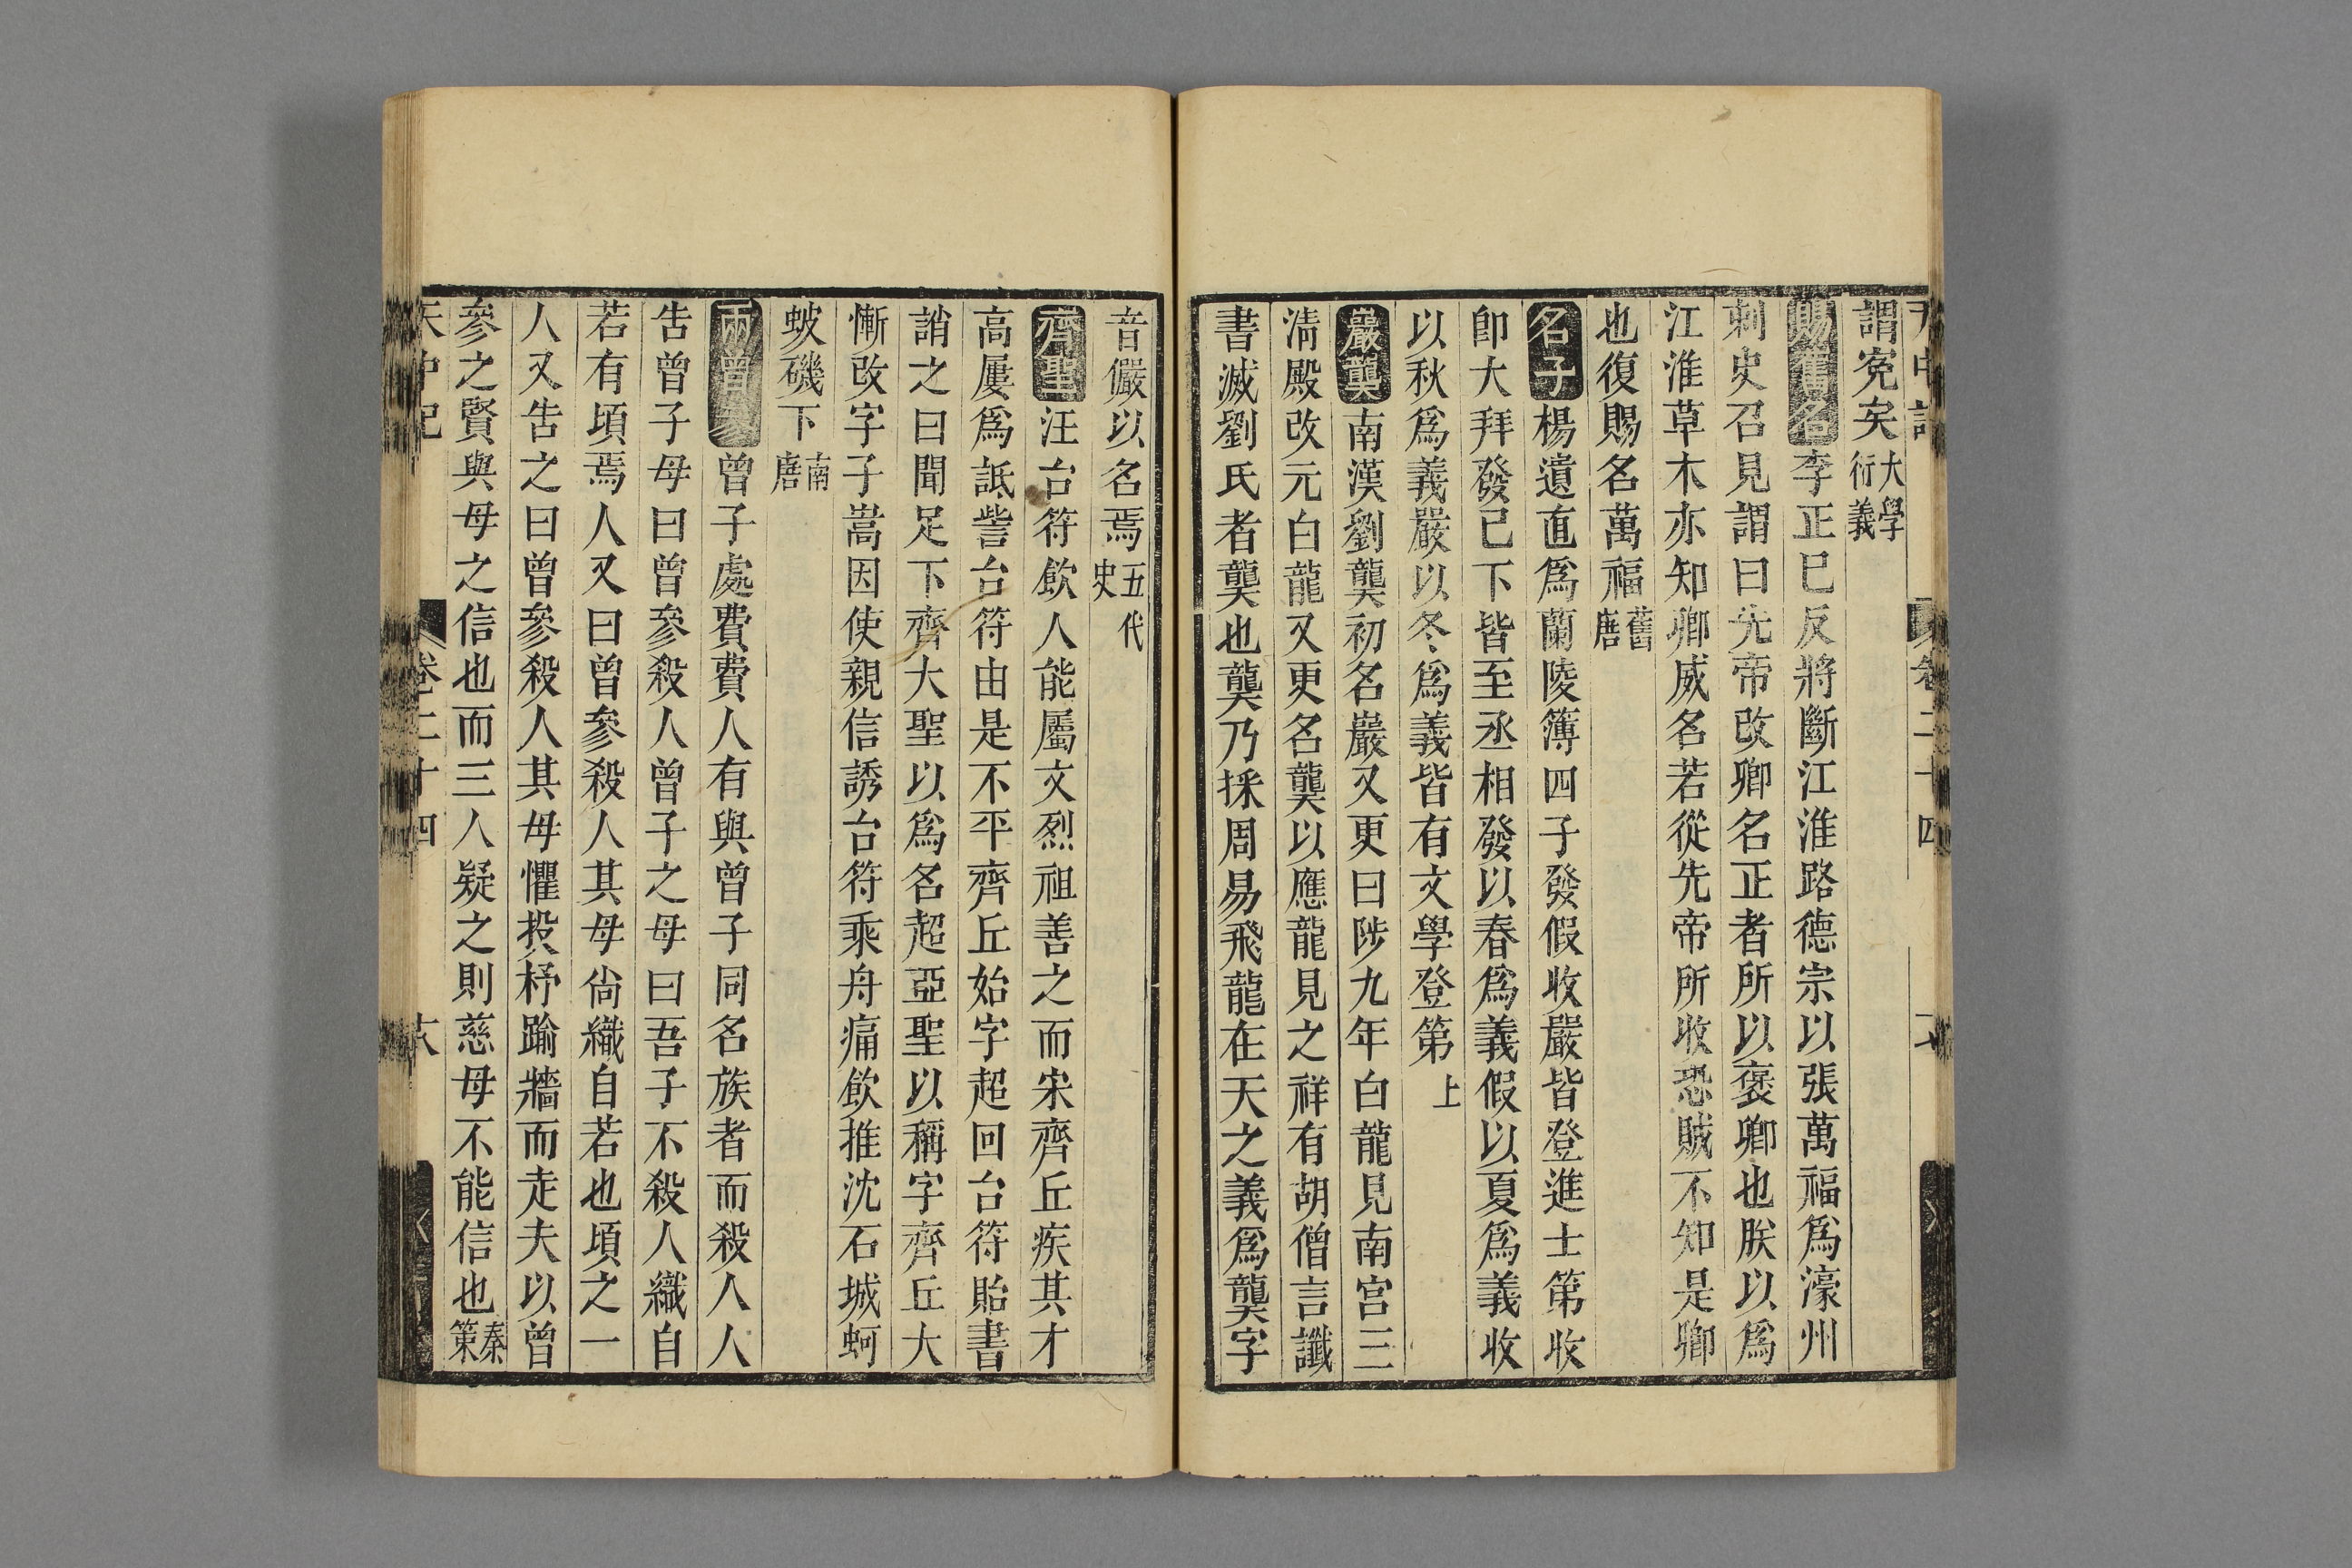 天中記 卷二十四
謂寃矣大學衍義
賜舊名李正已反將斷江淮路德宗以張萬福爲濠州
刺史召見謂曰先帝改卿名正者所以褒卿也朕以爲
江淮草木亦知卿威名若從先帝所收恐賊不知是卿
也復賜名萬福舊唐
名子楊遺直爲蘭陵簿四子發假收嚴皆登進士第收
卽大拜發已下皆至丞相發以春爲義假以夏爲義收
以秋爲義嚴以冬爲義皆有文學登第上
巖龑南漢劉龑初名巖又更曰陟九年白龍見南宮三
淸殿改元白龍又更名龔以應龍見之祥有胡僧言讖
書滅劉氏者龔也龔乃採周易飛龍在天之義爲龑字
音儼以名焉五代史
齊聖汪台符飲人能屬文烈祖善之而宋齊丘疾其才
高屢爲詆訾台符由是不平齊丘始字超回台符貽書
誚之曰聞足下齊大聖以爲名超亞聖以稱字齊丘大
慚改字子嵩因使親信誘台符乘舟痛飲推沈石城蚵
蚾磯下南唐
兩曾參曾子處費費人有與曾子同名族者而殺人人
告曾子母曰曾參殺人曾子之母曰吾子不殺人織自
若有頃焉人又曰曾參殺人其母尙織自若也頃之一
人又告之曰曾參殺人其母懼投杼踰牆而走夫以曾
參之賢與母之信也而三人疑之則慈母不能信也秦策
天中記 卷二十四